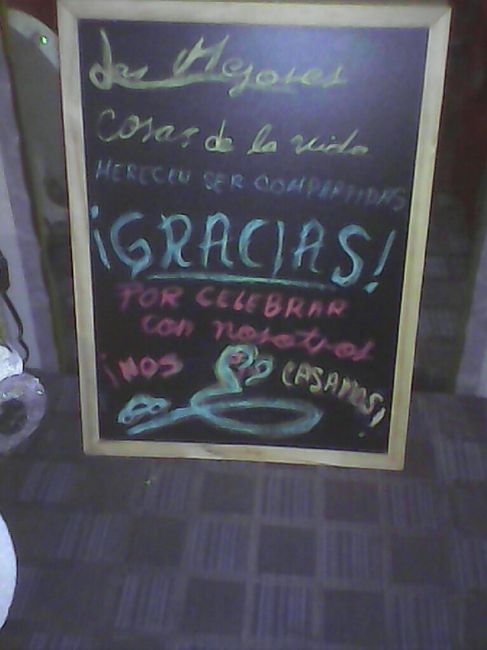 Las Mejores
Cosas de la vida
MERECEN SER COMPARTIDAS
¡GRACIAS!
POR CELEBRAR
con nosotros
¡NOS CASAMOS!